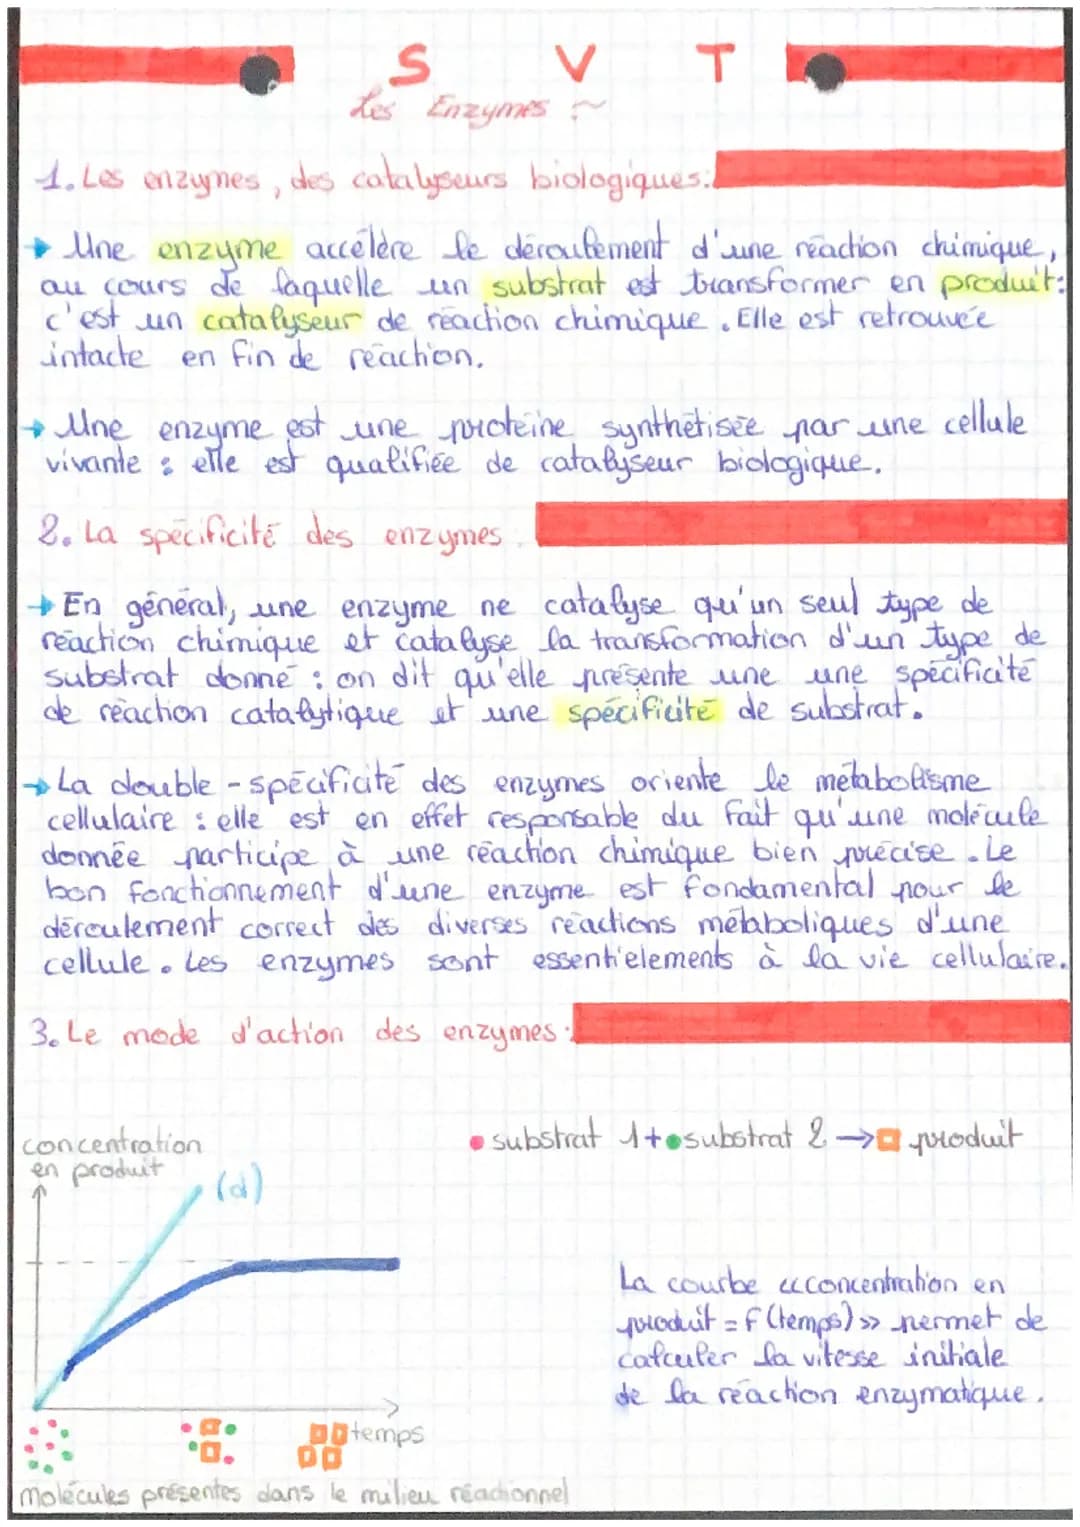 S V T
Les Enzymes ~
1. Les enzymes, des catalyseurs biologiques:
→ Une enzyme accélère le déroulement d'une réaction chimique,
au cours de laquelle un substrat est transformer en produit:
c'est un catalyseur de réaction chimique. Elle est retrouvée
intacte en fin de réaction.
→ Une enzyme est une protéine synthétisée par une cellule
vivante : elle est qualifiée de catalyseur biologique.
2. La spécificité des enzymes.
→ En général, une enzyme ne catalyse qu'un seul type de
réaction chimique et catalyse la transformation d'un type de
substrat donné : on dit qu'elle présente une une spécificité
de réaction catalytique et une spécificité de substrat.
→ La double-spécificité des enzymes oriente le métabolisme
cellulaire : elle est en effet responsable du fait qu'une molécule
donnée participe à une réaction chimique bien précise. Le
bon fonctionnement d'une enzyme est fondamental pour le
déroulement correct des diverses réactions métaboliques d'une
cellule. Les enzymes sont essentielements à la vie cellulaire.
3. Le mode d'action des enzymes:
substrat 1 + substrat 2 → produit
concentration
en produit
(d)
La courbe «concentration en
produit = f (temps)» permet de
calculer la vitesse initiale
de la réaction enzymatique.
temps
molécules présentes dans le milieu réactionnel